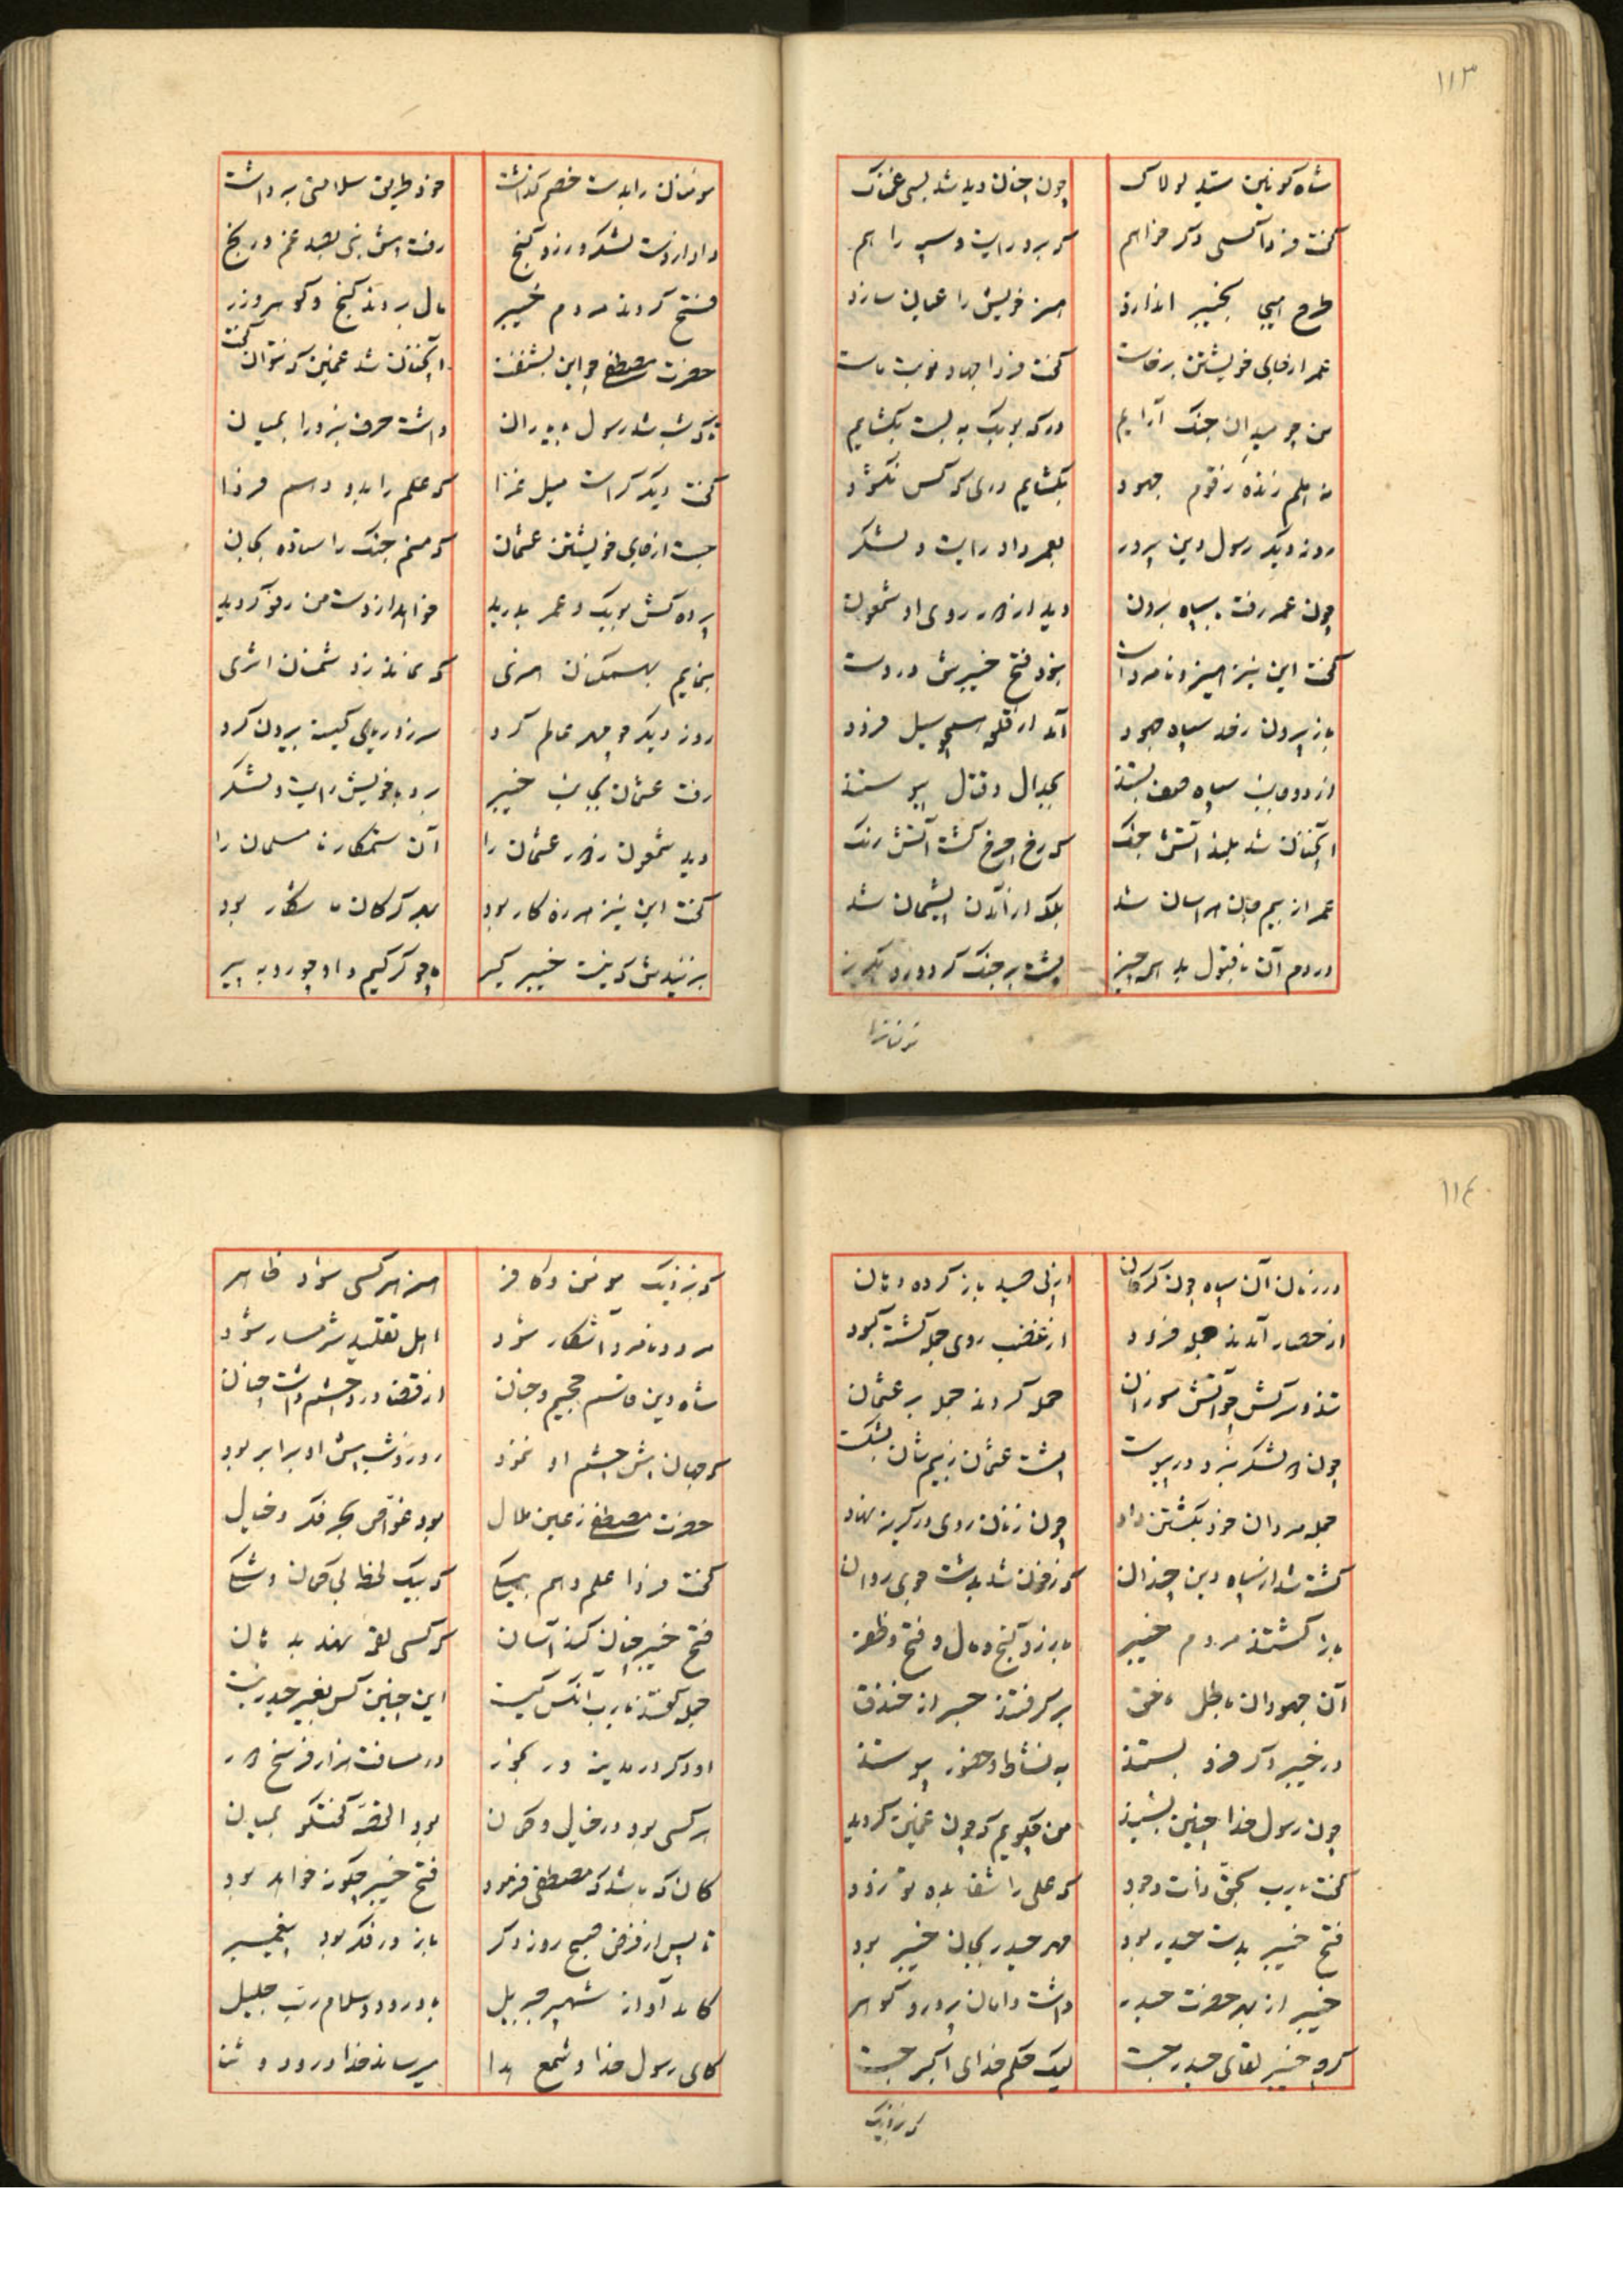 ١١٣
شاه کونین سید لولاک چون چنان دید شد بسی غمناک
گفت فردا کسی دکر خواهم که برد رایت و سپه را هم
طرح هیجی بخیبر اندازد هنر خویش را عیان سازد
عمر از جای خویشتن برخاست گفت فردا جهاد نوبت ماست
من چو میدان جنک آرایم درکه بوبکر به بست بکشایم
بکشایم دری که کس نکشود
روز دیکر رسول دین پرور بعمر داد رایت و لشکر
چون عمر رفت با سپاه برون دید از دور روی او شمعون
گفت این نیز هیز و نامرد است نبود فتح خیبرش در دست
باز بیرون رفت سپاه جهود آمد از قلعه همچو سیل فرود
از دو جانب سپاه صف بستند بجدال و قتال پیوستند
آنچنان شد بلند آتش جنک که رخ چرخ کشت آتش رنک
عمر از بیم جان هراسان شد بلکه از آمدن پشیمان شد
در دم آن ناقبول بد همه چیز پشت بر جنک کرد و زود بکریز
مومنان را بدست خصم کذاشت خود طریق سلامتی برداشت
داد از دست لشکر و زر و کنج رفت پیش نبی بصد غم و رنج
فتح کردند مردم خیبر مال بردند کنج و کوهر و زر
حضرت مصطفی چو این بشنفت آنچنان شد غمین که نتوان گفت
داشت حرف نبرد را بمیان
گفت دیکر کراست میل غزا که علم را بدو دهم فردا
جست از جای خویشتن عثمان که منم جنک را ستاده بجان
پرده کش بوبکر و عمر بدرید خواهد از دست من رفو کردید
بنمایم بهمکنان هنری که نماند ز دشمنان اثری
روز دیکر چو مهر عالم کرد سر ز دریای کینه بیرون کرد
رفت عثمان بجانب خیبر برد با خویش رایت و لشکر
دید شمعون ز دور عثمان را آن ستمکار نا مسلمان را
گفت این نیز هرزه کار بود بهر کرکان ما شکار بود
بزنیدش که نیست خیبر کیر ما چو کرکیم و او چو روبه پیر
مومنانرا
١١٤
در زمان آن سپاه چون کرکان از پی صید باز کرده دهان
از حصار آمدند جمله فرود از غضب روی جمله کشته کبود
تند و سرکش چو آتش سوزان حمله کردند جمله بر عثمان
پشت عثمان ز بیم شان بشکست
جمله مردان خود بکشتن داد چون زنان روی در کریز نهاد
کشته شد از سپاه دین چندان که ز خون شد بدشت جوی روان
باز کشتند مردم خیبر با زر و کنج و مال و فتح و ظفر
آن جهودان باطل ناحق بر کرفتند جسر از خندق
در خیبر دکر فرو بستند به نشاط و حضور پیوستند
چون رسول خدا چنین بشنید من چکویم که چون غمین کردید
گفت یا رب بحق ذات وجود که علی را شفا بده تو زود
فتح خیبر بدست حیدر بود مهر حیدر بجان خیبر بود
خیبر از بهر حضرت حیدر داشت دامان پر زر و کوهر
کرچه خیبر لقای حیدر جست لیک حکم خدای اکبر جست
که بنزدیک مومن و کافر هنر هر کسی شود ظاهر
مرد و نامرد آشکار شود اهل تقلید شرمسار شود
شاه دین قاسم جحیم و جنان از قضا درد چشم داشت چنان
که جهان پیش چشم او نمود روز و شب پیش او برابر بود
حضرت مصطفی ز عین ملال بود غواص بحر فکر و خیال
گفت فردا علم دهم بیکی که بیک لحظه بی کمان و شکی
فتح خیبر چنان کند آسان که کسی لقمه نهد به دهان
جمله کفتند یا رب آنکس کیست این چنین کس بغیر حیدر نیست
در مسافت هزار فرسخ دور
هر کسی بود در خیال و کمان بود القصه گفتگو بمیان
کان که باشد که مصطفی فرمود فتح خیبر چکونه خواهد بود
تا پس از فرض صبح روز دکر باز در فکر بود پیغمبر
کامد آواز شهپر جبریل با درود و سلام رب جلیل
کای رسول خدا و شمع هدا میرساند خدا درود و ثنا
که بنزدیک